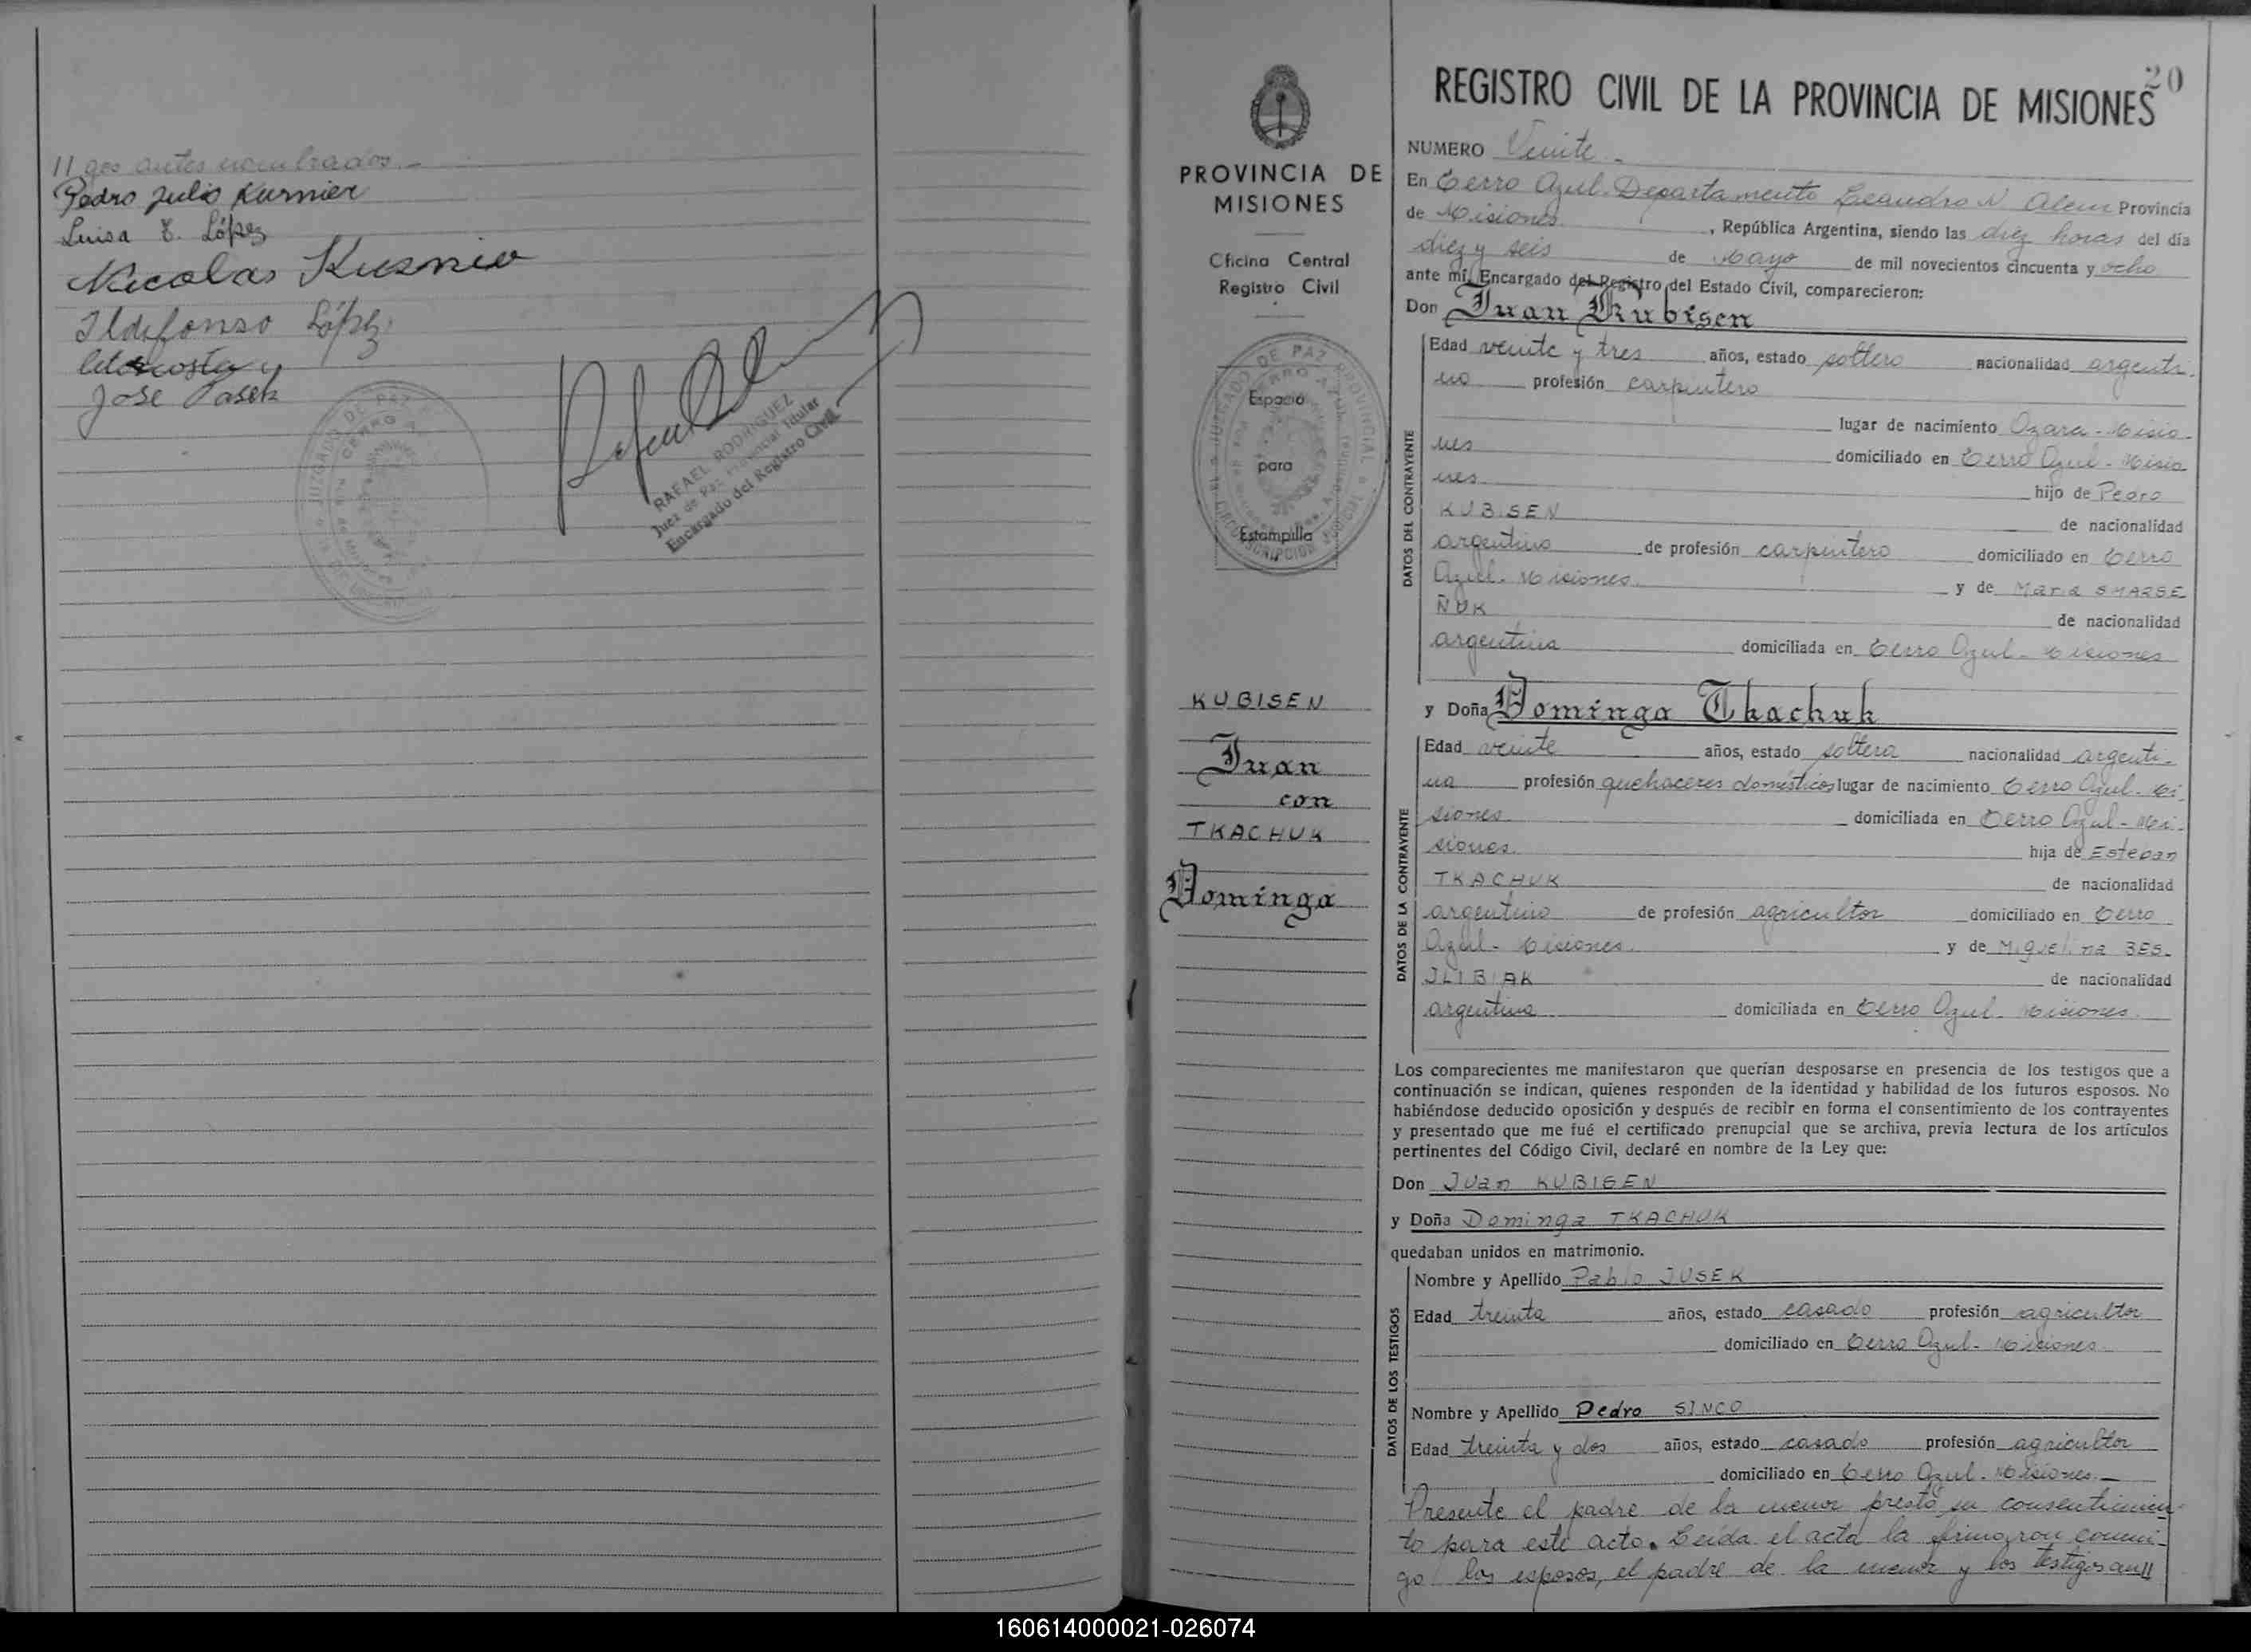 // gos antes nombrados.-
Pedro Julio Kusnier
Luisa E. López
Nicolas Kusnier
Ildefonso López
Jose Pasek
JUZGADO DE PAZ
CERRO AZUL
RAFAEL RODRIGUEZ
Juez de Paz Provincial Titular
Encargado del Registro Civil
PROVINCIA DE
MISIONES
Oficina Central
Registro Civil
JUZGADO DE PAZ PROVINCIAL
CERRO AZUL
Espacio
para
Estampilla
CIRCUNSCRIPCION JUDICIAL
KUBISEN
Juan
con
TKACHUK
Dominga
20
REGISTRO CIVIL DE LA PROVINCIA DE MISIONES
NUMERO Veinte.-
En Cerro Azul. Departamento Leandro N. Alem Provincia
de Misiones , República Argentina, siendo las diez horas del día
diez y seis de Mayo de mil novecientos cincuenta y ocho
ante mí, Encargado del Registro del Estado Civil, comparecieron:
Don Juan Kubisen
DATOS DEL CONTRAYENTE
Edad veinte y tres años, estado soltero nacionalidad argenti-
no profesión carpintero
lugar de nacimiento Azara - Misio-
nes domiciliado en Cerro Azul - Misio
nes hijo de Pedro
KUBISEN de nacionalidad
argentino de profesión carpintero domiciliado en Cerro
Azul. Misiones. y de Maria SMARSE
ÑUK de nacionalidad
argentina domiciliada en Cerro Azul - Misiones
y Doña Dominga Tkachuk
DATOS DE LA CONTRAYENTE
Edad veinte años, estado soltera nacionalidad argenti-
na profesión quehaceres domésticos lugar de nacimiento Cerro Azul - Mi-
siones domiciliada en Cerro Azul - Mi-
siones. hija de Esteban
TKACHUK de nacionalidad
argentino de profesión agricultor domiciliado en Cerro
Azul - Misiones. y de Miguelina BES-
JLIBIAK de nacionalidad
argentina domiciliada en Cerro Azul - Misiones.
Los comparecientes me manifestaron que querían desposarse en presencia de los testigos que a
continuación se indican, quienes responden de la identidad y habilidad de los futuros esposos. No
habiéndose deducido oposición y después de recibir en forma el consentimiento de los contrayentes
y presentado que me fué el certificado prenupcial que se archiva, previa lectura de los artículos
pertinentes del Código Civil, declaré en nombre de la Ley que:
Don Juan KUBISEN
y Doña Dominga TKACHUK
quedaban unidos en matrimonio.
DATOS DE LOS TESTIGOS
Nombre y Apellido Pablo JUSEK
Edad treinta años, estado casado profesión agricultor
domiciliado en Cerro Azul - Misiones.
Nombre y Apellido Pedro SINCO
Edad treinta y dos años, estado casado profesión agricultor
domiciliado en Cerro Azul. Misiones.-
Presente el padre de la menor prestó su consentimien-
to para este acto. Leida el acta la firmaron conmi-
go los esposos, el padre de la menor y los testigos an//
160614000021-026074